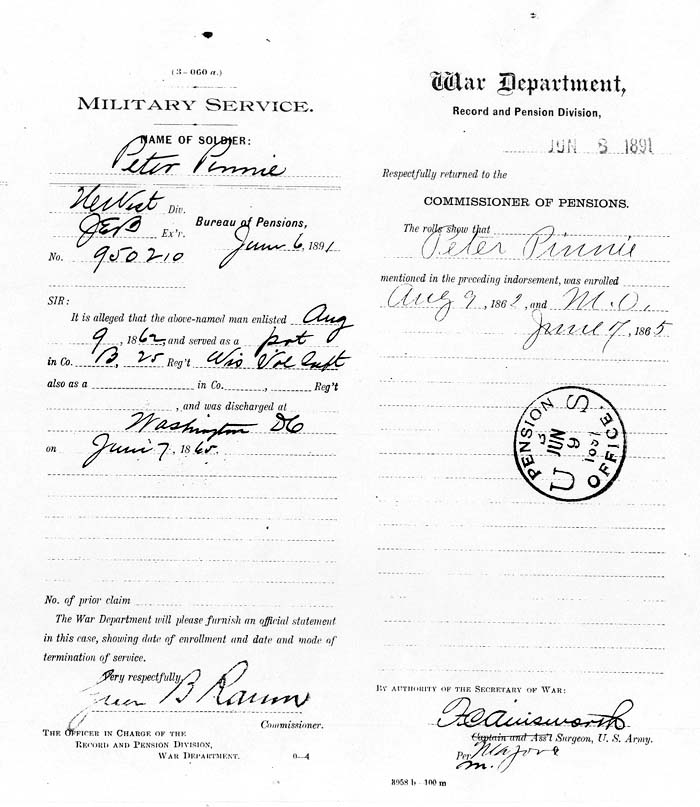 (3-060 a.)
MILITARY SERVICE.
NAME OF SOLDIER:
Peter Pinnie
Div.
Ex'r.
Bureau of Pensions,
No. 950210
June 6, 1891
SIR:
It is alleged that the above-named man enlisted Aug
9, 1862, and served as a pvt
in Co. B, 25 Reg't Wis Vol Inft
also as a in Co. , Reg't
, and was discharged at
Washington DC
on June 7, 1865.
No. of prior claim
The War Department will please furnish an official statement
in this case, showing date of enrollment and date and mode of
termination of service.
Very respectfully,
Green B Raum
Commissioner.
THE OFFICER IN CHARGE OF THE
RECORD AND PENSION DIVISION,
WAR DEPARTMENT.
0-4
War Department,
Record and Pension Division,
JUN 8 1891
Respectfully returned to the
COMMISSIONER OF PENSIONS.
The rolls show that
Peter Pinnie
mentioned in the preceding indorsement, was enrolled
Aug 9, 1862, and M.O.
June 7, 1865
U S PENSION OFFICE.
JUN 9 1891
BY AUTHORITY OF THE SECRETARY OF WAR:
F C Ainsworth
Captain and Ass't Surgeon, U. S. Army.
Major
Per
m.
8958 b-100 m